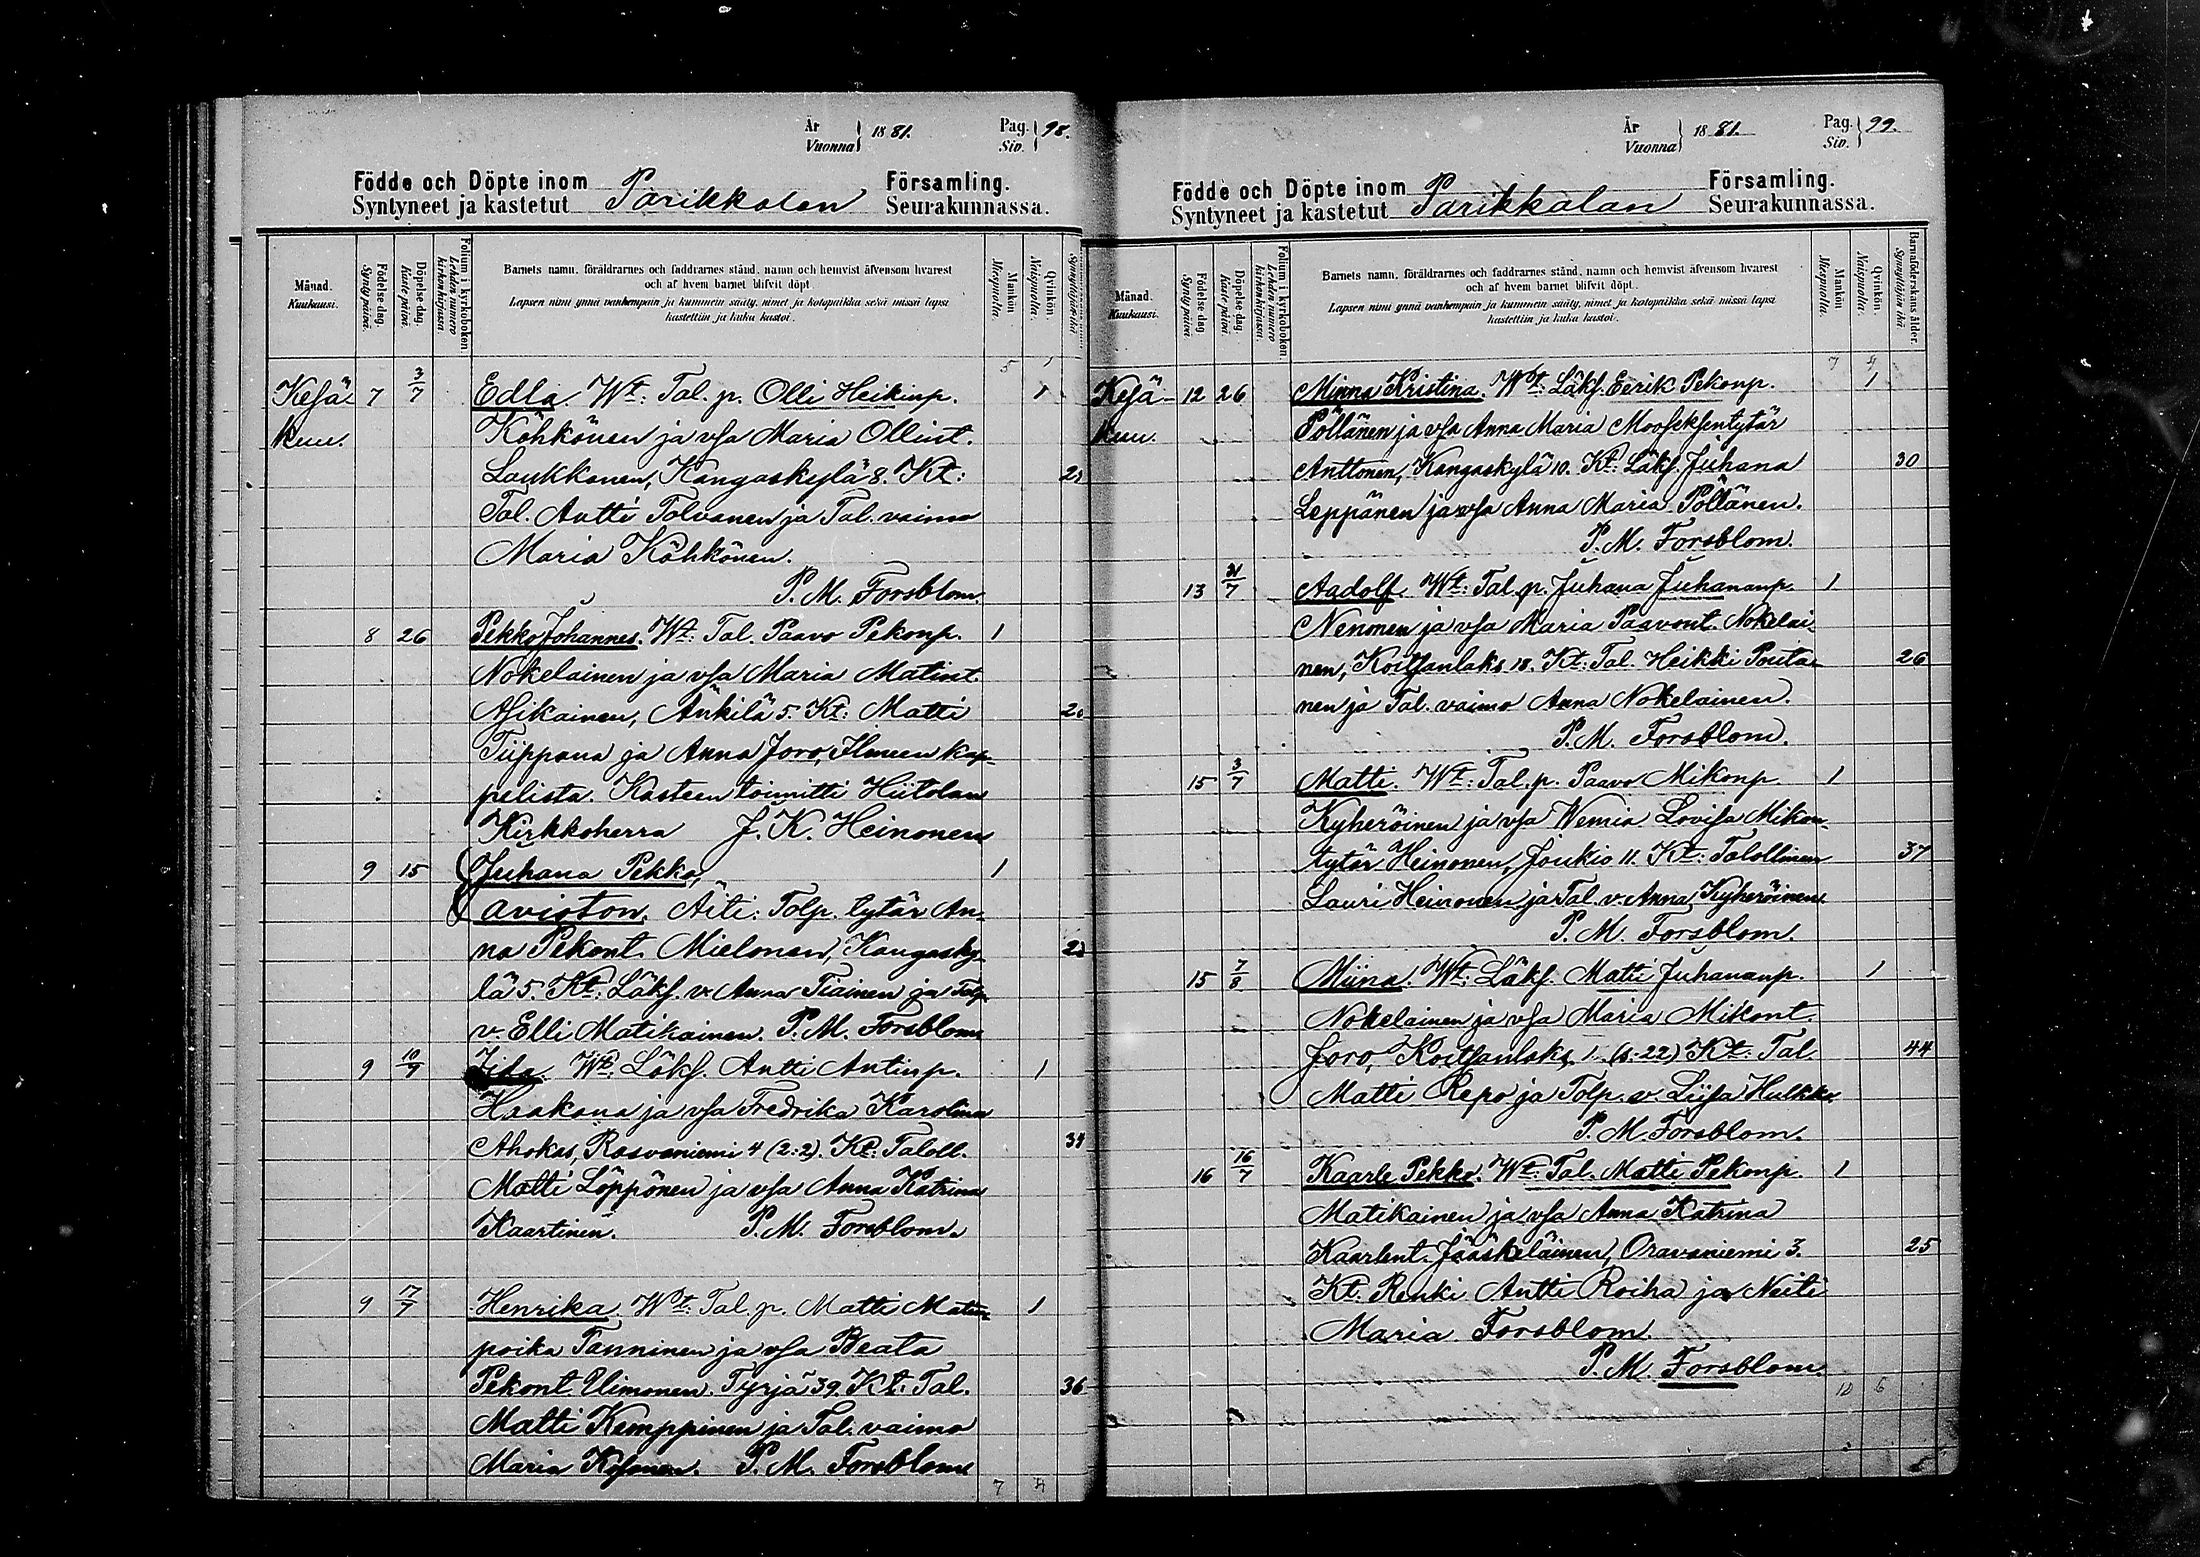 År
Vuonna } 1881. Pag.
Siv. } 98.
Födde och Döpte inom Parikkalan Församling.
Syntyneet ja kastetut Seurakunnassa.
Månad.
Kuukausi.
Födelse-dag.
Syntypäivä.
Döpelse-dag.
Kastepäivä.
Folium i kyrkoboken.
Lehden numero
kirkonkirjassa
Barnets namn, föräldrarnes och faddrarnes stånd, namn och hemvist äfvensom hvarest
och af hvem barnet blifvit döpt.
Lapsen nimi ynnä vanhempain ja kummein sääty, nimet ja kotopaikka sekä missä lapsi
kastettiin ja kuka kastoi.
Mankön
Miespuolta.
Qvinkön.
Naispuolta.
Synnyttäjän ikä
5 1
Kesä- 7 3/7 Edla. Wt: Tal. p. Olli Heikinp. 1
kuu. Köhkönen ja vsa Maria Ollint.
Laukkanen, Kangaskylä 8. Kt:
Tal. Antti Tolvanen ja Tal. vaimo
Maria Köhkönen.
P. M. Forsblom.
8 26 Pekko Johannes. Wt: Tal. Paavo Pekonp. 1
Nokelainen ja vsa Maria Matint.
Asikainen, Änkilä 5. Kt: Matti
Tiippana ja Anna Joro, Ilmeen kap-
pelista. Kasteen toimitti Hiitolan
Kirkkoherra J. K. Heinonen
9 15 Juhana Pekko, 1
avioton. Äiti: Tolp. tytär An-
na Pekont. Mielonen, Kangasky-
lä 5. Kt: Läks. v. Anna Tiainen ja Tolp.
v. Elli Matikainen. P. M. Forsblom
9 10/7 Iida. Wt: Läks. Antti Antinp. 1
Haakana ja vsa Fredrika Karolina
Ahokas, Rasvaniemi 4 (2:2). Kt: Taloll. 34
Matti Löppönen ja vsa Anna Katrina
Kaartinen. P. M. Forsblom.
9 17/7 Henrika. Wt: Tal. p. Matti Matin- 1
poika Tanninen ja vsa Beata
Pekont. Uimonen. Tyrjä 39. Kt: Tal. 36
Matti Kemppinen ja Tal. vaimo
Maria Kosonen. P. M. Forsblom
7 4
År
Vuonna } 1881. Pag.
Siv. } 99.
Födde och Döpte inom Parikkalan Församling.
Syntyneet ja kastetut Seurakunnassa.
Månad.
Kuukausi.
Födelse-dag
Syntypäivä.
Döpelse-dag
Kastepäivä.
Folium i kyrkoboken.
Lehden numero
kirkonkirjassa.
Barnets namn, föräldrarnes och faddrarnes stånd, namn och hemvist äfvensom hvarest
och af hvem barnet blifvit döpt.
Lapsen nimi ynnä vanhempain ja kummein sääty, nimet ja kotopaikka sekä missä lapsi
kastettiin ja kuka kastoi.
Mankön
Miespuolta.
Qvinkön.
Naispuolta.
Barnaföderskans ålder.
Synnyttäjän ikä.
7 4
Kesä- 12 26 Minna Kristina. Wt: Läks. Eerik Pekonp. 1
kuu. Pöllänen ja vsa Anna Maria Mooseksentytär
Anttonen, Kangaskylä 10. Kt: Läks. Juhana 30
Leppänen ja vsa Anna Maria Pöllänen.
P. M. Forsblom.
13 31/7 Aadolf. Wt: Tal. p. Juhana Juhananp. 1
Nenonen ja vsa Maria Paavont. Nokelai-
nen, Koitsanlaks 18. Kt: Tal. Heikki Pouta- 26
nen ja Tal. vaimo Anna Nokelainen.
P. M. Forsblom.
15 3/7 Matti. Wt: Tal. p. Paavo Mikonp 1
Kyheröinen ja vsa Wemia Lovisa Mikon-
tytär Heinonen, Joukio 11. Kt: Talollinen 37
Lauri Heinonen ja Tal. v. Anna Kyheröinen
P. M. Forsblom.
15 7/8 Miina. Wt: Läks. Matti Juhananp. 1
Nokelainen ja vsa Maria Mikont.
Joro, Koitsanlaks 1. (s:22) Kt: Tal. 44
Matti Repo ja Tolp. v. Liisa Hulkko.
P. M. Forsblom.
16 16/7 Kaarle Pekko. Wt: Tal. Matti Pekonp. 1
Matikainen ja vsa Anna Katrina
Kaarlent. Jääskeläinen, Oravaniemi 3. 25
Kt: Renki Antti Roiha ja Neiti
Maria Forsblom.
P. M. Forsblom.
10 6